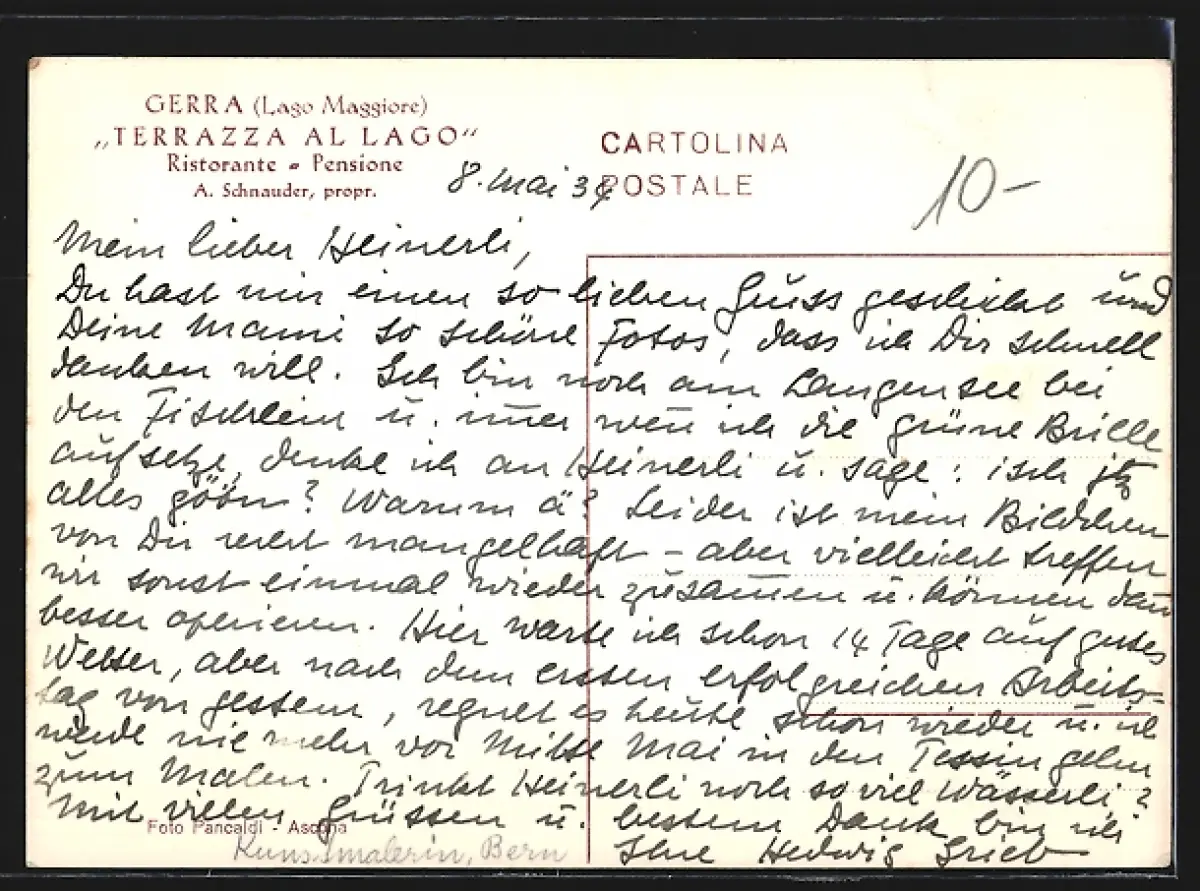 GERRA (Lago Maggiore)
„TERRAZZA AL LAGO"
Ristorante - Pensione
A. Schnauder, propr.
CARTOLINA
POSTALE
8. Mai 39
10-
Mein lieber Heinerli,
Du hast mir einen so lieben Gruss geschickt und
Deine Mami so schöne Fotos, dass ich Dir schnell
danken will. Ich bin noch am Langensee bei
den Fischlein u. im̅er wen̅ ich die grüne Brille
aufsetze, denke ich an Heinerli u. sage: isch jtz
alles göön? Warum ä? Leider ist mein Bildchen
von Dir recht mangelhaft - aber vielleicht treffen
wir sonst einmal wieder zusam̅en u. können dan̅
besser operieren. Hier warte ich schon 14 Tage auf gutes
Wetter, aber nach dem ersten erfolgreichen Arbeits-
tag von gestern, regnet es heute schon wieder u. ich
werde nie mehr vor Mitte Mai in den Tessin gehen
zum Malen. Trinkt Heinerli noch so viel Wässerli?
Mit vielen Grüssen u. bestem Dank bin ich
Ihre Hedwig Grieb
Foto Pancaldi - Ascona
Kunstmalerin, Bern